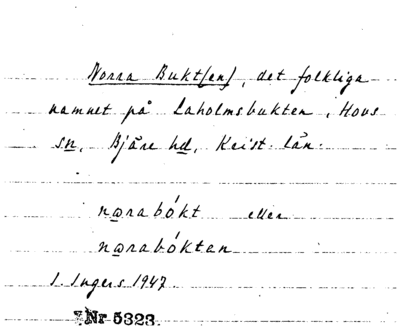 Norra Bukt(en), det folkliga
namnet på Laholmsbukten, Hovs
sn, Bjäre hd, Krist. län.
nœrabókt eller
nœrabóktan
I. Ingers 1947
Nr 5323.